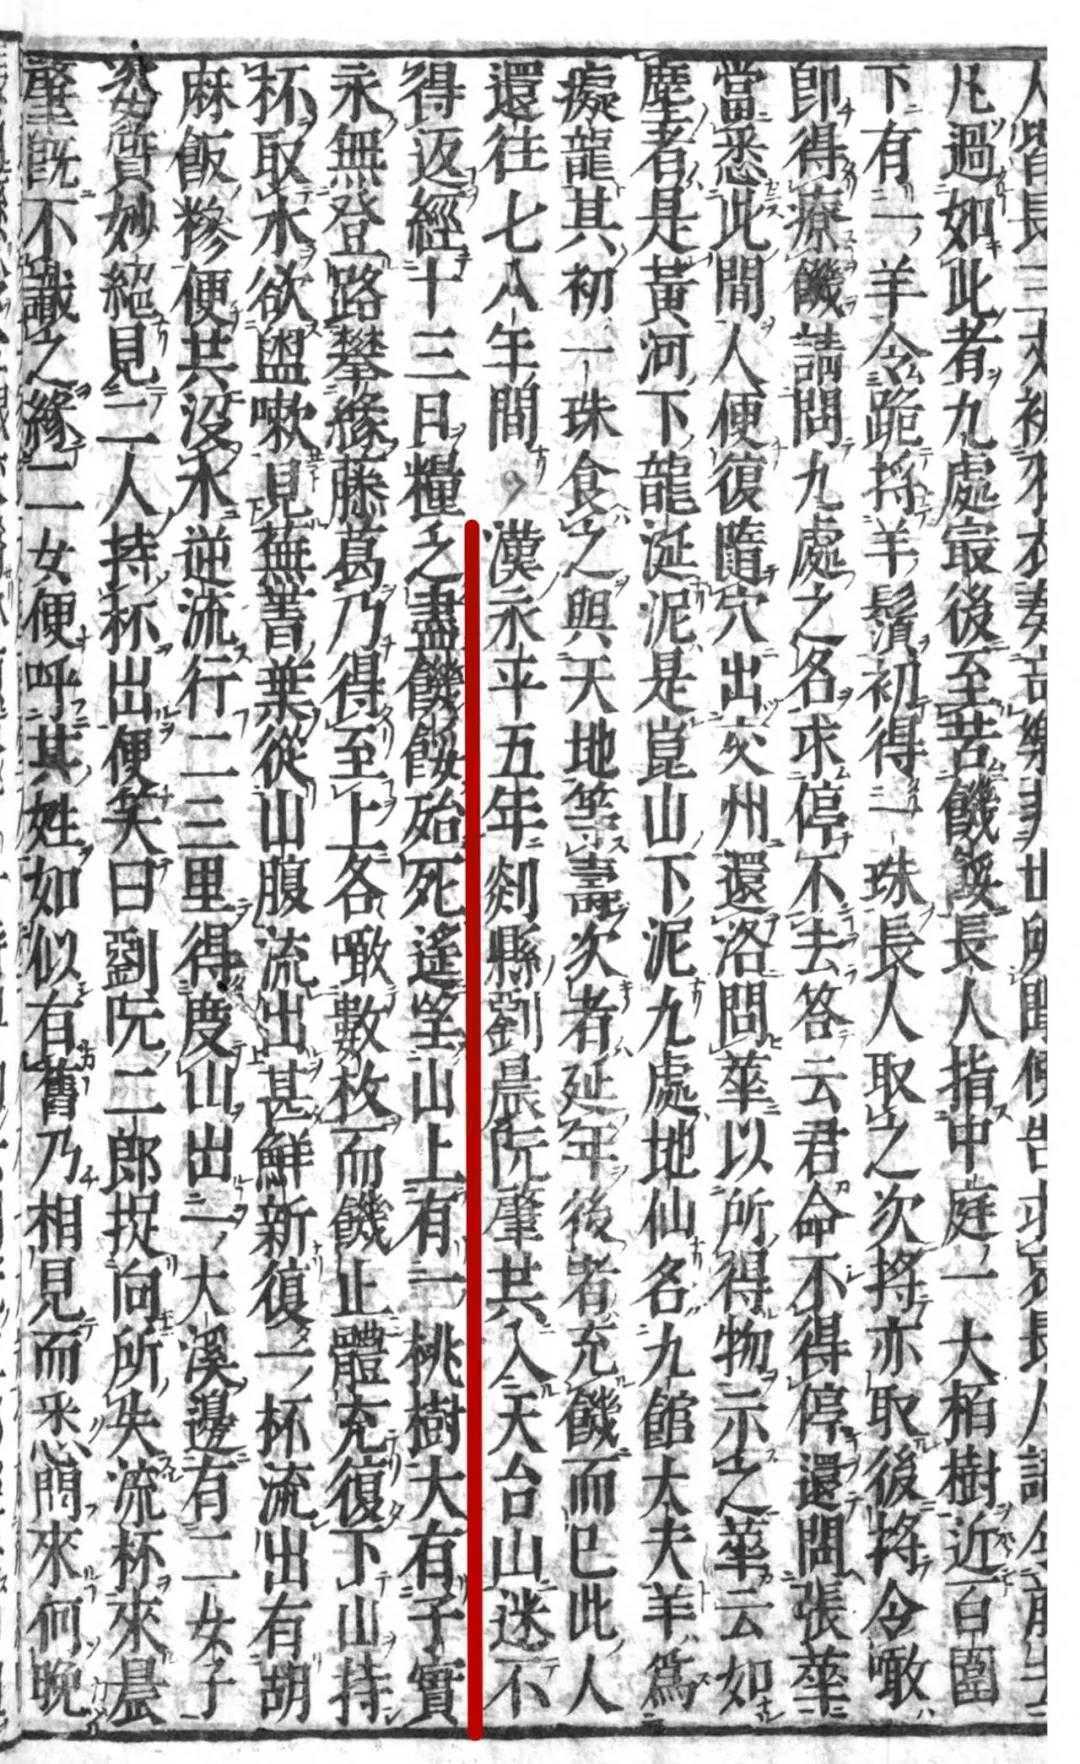 人皆長三丈被羽衣奏奇樂非世所聞便告求哀長人語令前去
凡過如此者九處最後至苦饑餒長人指中庭一大栢樹近百圍
下有一羊令跪捋羊鬚初得一珠長人取之次捋亦取後捋令噉
即得療饑請問九處之名求停不去答云君命不得停還問張華
當悉此間人便復隨穴出交州還洛問華以所得物示之華云如
塵者是黃河下龍涎泥是崑山下泥九處地仙名九館大夫羊爲
癡龍其初一珠食之與天地等壽次者延年後者充饑而已此人
還往七八年間 漢永平五年剡縣劉晨阮肇共入天台山迷不
得返經十三日糧乏盡饑餒殆死遙望山上有一桃樹大有子實
永無登路攀緣藤葛乃得至上各噉數枚而饑止體充復下山持
杯取水欲盥嗽見蕪菁葉從山腹流出甚鮮新復一杯流出有胡
麻飯糝便共沒水逆流行二三里得度山出一大溪邊有二女子
姿質妙絕見二人持杯出便笑曰劉阮二郎捉向所失流杯來晨
肇既不識之緣二女便呼其姓如似有舊乃相見而悉問來何晚